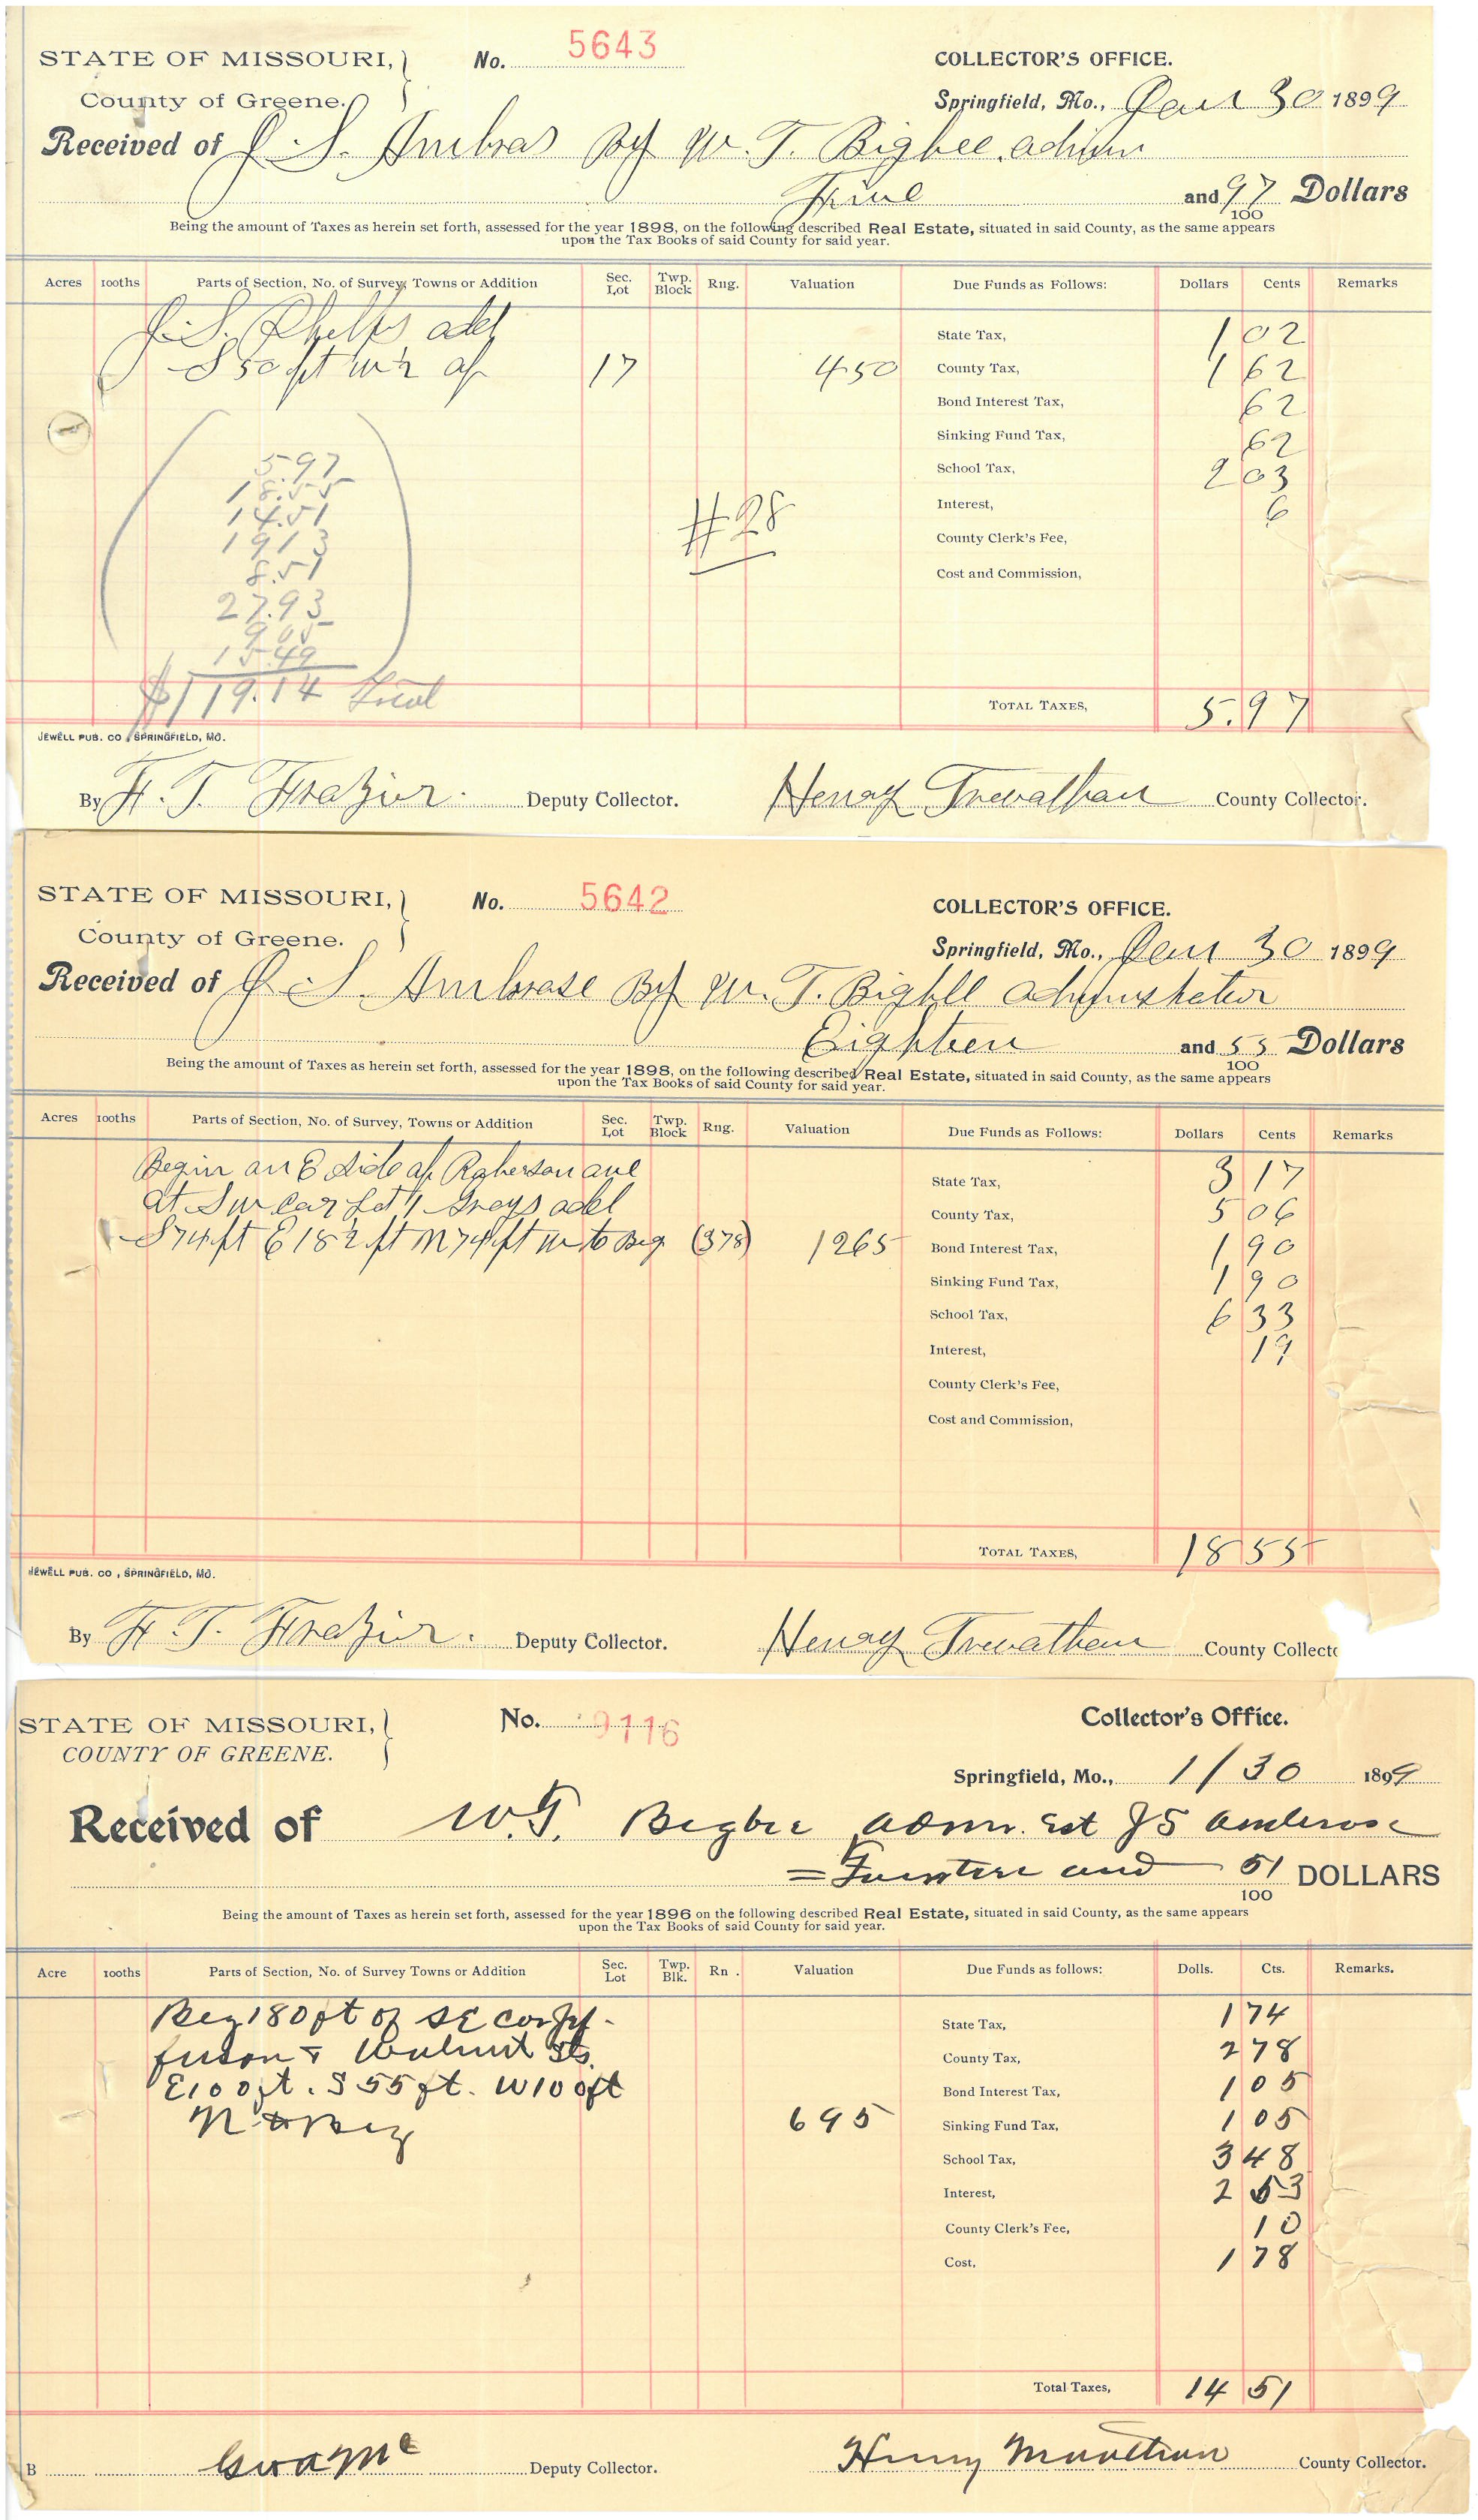 STATE OF MISSOURI,
County of Greene.
No. 5643
COLLECTOR'S OFFICE.
Springfield, Mo., Jan 30 1899
Received of J. S. Ambras By W. T. Bigbee, admn
Five and 97/100 Dollars
Being the amount of Taxes as herein set forth, assessed for the year 1898, on the following described Real Estate, situated in said County, as the same appears
upon the Tax Books of said County for said year.
Acres 100ths Parts of Section, No. of Survey, Towns or Addition Sec. Lot Twp. Block Rng. Valuation Due Funds as Follows: Dollars Cents Remarks
J. S. Phelps add
S 50 ft W ½ of 17 450
State Tax, 1 02
County Tax, 1 62
Bond Interest Tax, 62
Sinking Fund Tax, 62
School Tax, 2 03
Interest, 6
County Clerk's Fee,
Cost and Commission,
5.97
18.55
14.51
19 13
8.51
27.93
9 05
15.49
$119.14 Total
#28
TOTAL TAXES, 5.97
JEWELL PUB. CO., SPRINGFIELD, MO.
By F. T. Frazier. Deputy Collector. Henry Trevathan County Collector.
STATE OF MISSOURI,
County of Greene.
No. 5642
COLLECTOR'S OFFICE.
Springfield, Mo., Jan 30 1899
Received of J S. Ambrose By W. T. Bigbee Administrator
Eighteen and 55/100 Dollars
Being the amount of Taxes as herein set forth, assessed for the year 1898, on the following described Real Estate, situated in said County, as the same appears
upon the Tax Books of said County for said year.
Acres 100ths Parts of Section, No. of Survey, Towns or Addition Sec. Lot Twp. Block Rng. Valuation Due Funds as Follows: Dollars Cents Remarks
Begin on E Side of Roberson ave
at S W cor Lot 1 Grays add
S 74 ft E 182 ft N 74 ft W to Beg (378) 1265
State Tax, 3 17
County Tax, 5 06
Bond Interest Tax, 1 90
Sinking Fund Tax, 1 90
School Tax, 6 33
Interest, 19
County Clerk's Fee,
Cost and Commission,
TOTAL TAXES, 18 55
JEWELL PUB. CO., SPRINGFIELD, MO.
By F. T. Frazier. Deputy Collector. Henry Trevathan County Collecto
STATE OF MISSOURI,
COUNTY OF GREENE.
No. 9116
Collector's Office.
Springfield, Mo., 1/30 1899
Received of W. T. Bigbee admr. Est J S Ambrose
= Fourteen and 51/100 DOLLARS
Being the amount of Taxes as herein set forth, assessed for the year 1896 on the following described Real Estate, situated in said County, as the same appears
upon the Tax Books of said County for said year.
Acre 100ths Parts of Section, No. of Survey Towns or Addition Sec. Lot Twp. Blk. Rn . Valuation Due Funds as follows: Dolls. Cts. Remarks.
Beg 180 ft of SE cor Jef-
ferson & Walnut Sts.
E 100 ft. S 55 ft. W 100 ft
N to Beg 695
State Tax, 1 74
County Tax, 2 78
Bond Interest Tax, 1 05
Sinking Fund Tax, 1 05
School Tax, 3 48
Interest, 2 53
County Clerk's Fee, 10
Cost, 1 78
Total Taxes, 14 51
B Deputy Collector. Henry Trevathan County Collector.